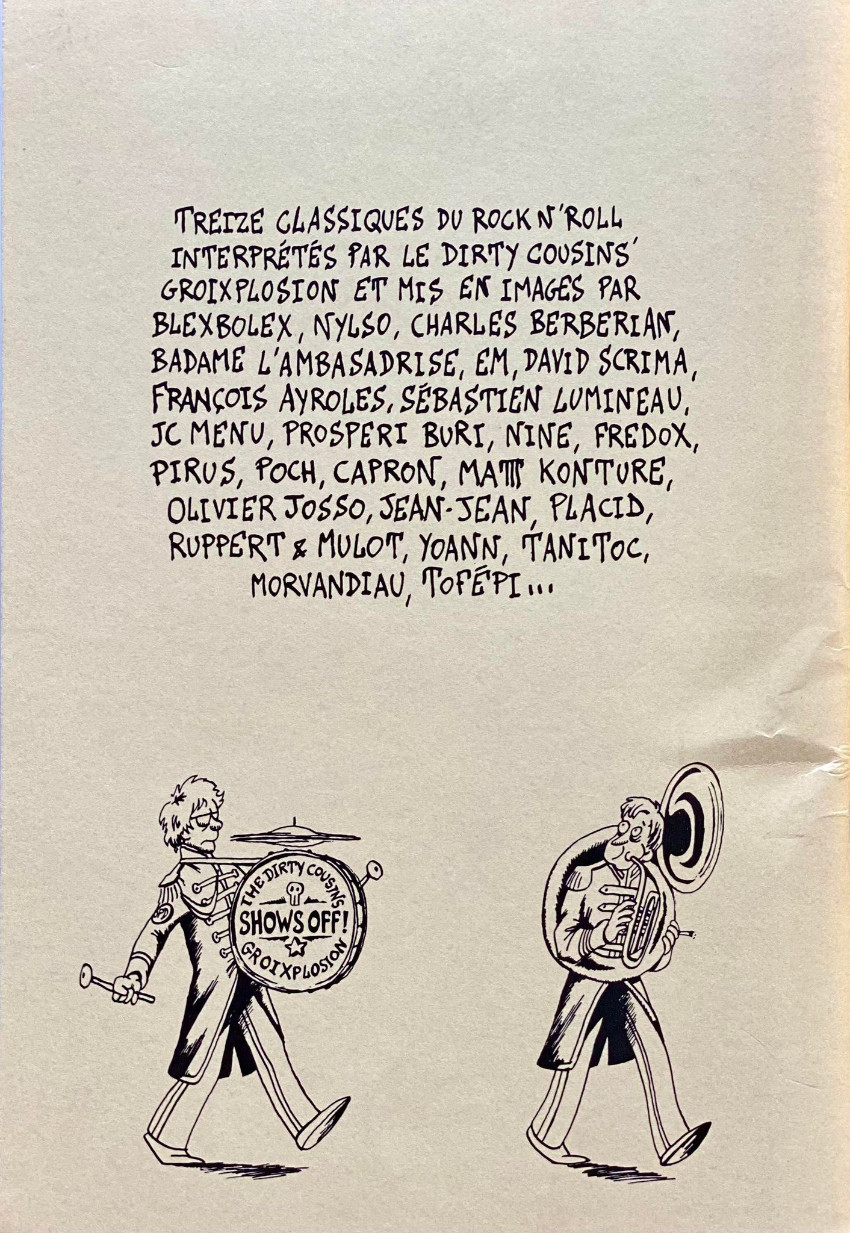 TREIZE CLASSIQUES DU ROCK N'ROLL
INTERPRÉTÉS PAR LE DIRTY COUSINS'
GROIXPLOSION ET MIS EN IMAGES PAR
BLEXBOLEX, NYLSO, CHARLES BERBERIAN,
BADAME L'AMBASADRISE, EM, DAVID SCRIMA,
FRANÇOIS AYROLES, SÉBASTIEN LUMINEAU,
JC MENU, PROSPERI BURI, NINE, FREDOX,
PIRUS, POCH, CAPRON, MATTT KONTURE,
OLIVIER JOSSO, JEAN-JEAN, PLACID,
RUPPERT & MULOT, YOANN, TANITOC,
MORVANDIAU, TOFÉPI...
THE DIRTY COUSIN'S
SHOWS OFF!
GROIXPLOSION